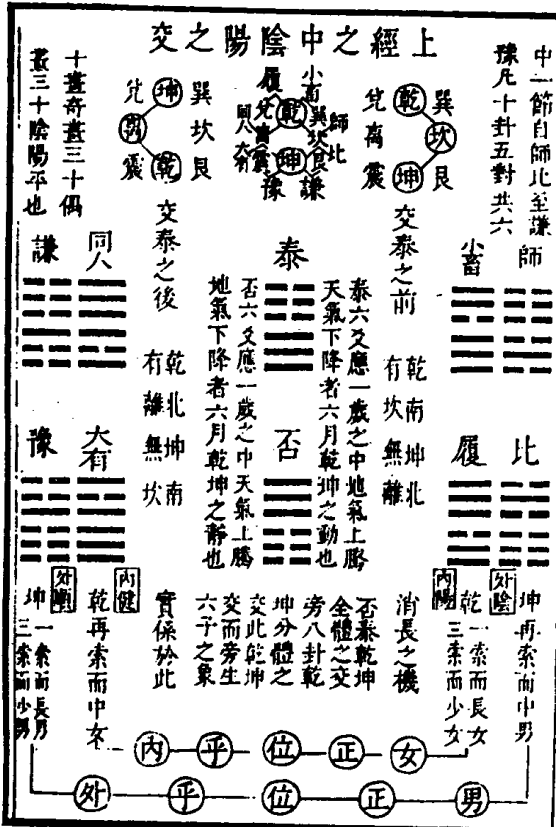 上經之中陰陽之交
中一節自師比至謙
豫凡十卦五對共六
十畫奇畫三十偶
畫三十陰陽平也
巽坎艮
乾坎坤
兌離震
小畜
師比
謙
豫
履
同人
大有
乾
坤
巽坎艮
坤離乾
兌震
師
小畜
交泰之前
乾南坤北
有坎無離
泰
泰六爻應一歲之中地氣上騰
天氣下降者六月乾坤之動也
否六爻應一歲之中天氣上騰
地氣下降者六月乾坤之靜也
交泰之後
乾北坤南
有離無坎
同人
謙
比
履
否
大有
豫
外陰
內陽
內健
外順
坤再索而中男
乾一索而長女
三索而少女
消長之機
否泰乾坤
全體之交
旁八卦乾
坤分體之
交此乾坤
交而旁生
六子之象
實係於此
乾再索而中女
坤一索而長男
三索而少男
女正位乎內
男正位乎外